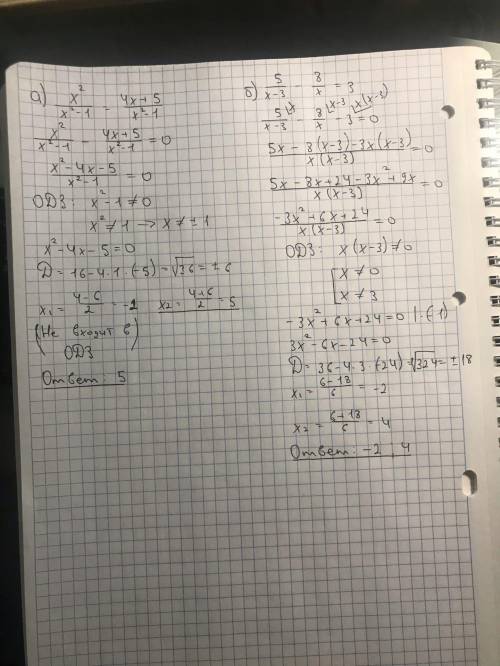 а) x²/(x²-1) - (4x+5)/(x²-1)
x²/(x²-1) - (4x+5)/(x²-1) = 0
(x²-4x-5)/(x²-1) = 0
ОДЗ: x²-1≠0
x²≠1 → x≠±1
x²-4x-5=0
D = 16-4·1·(-5) = √36 = ±6
x₁ = (4-6)/2 = -1 x₂ = (4+6)/2 = 5
(Не входит в
ОДЗ)
Ответ: 5
б) 5/(x-3) - 8/x = 3
5/(x-3) \x - 8/x \x-3 - 3 \x(x-3) = 0
(5x-8(x-3)-3x(x-3))/(x(x-3)) = 0
(5x-8x+24-3x²+9x)/(x(x-3)) = 0
(-3x²+6x+24)/(x(x-3)) = 0
ОДЗ: x(x-3)≠0
[x≠0
x≠3
-3x²+6x+24=0 |:(-1)
3x²-6x-24=0
D = 36-4·3·(-24) = √324 = ±18
x₁ = (6-18)/6 = -2
x₂ = (6+18)/6 = 4
Ответ: -2, 4